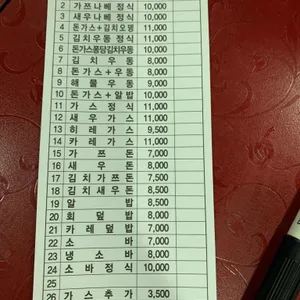 2 가쯔나베정식 10,000
3 새우나베정식 10,000
4 돈가스+김치오뎅 11,000
5 김치우동정식 11,000
6 돈가스퐁당김치우동 10,000
7 김치우동 8,000
8 돈가스+우동 8,000
9 해물우동 9,000
10 돈가스+알밥 10,000
11 가스정식 11,000
12 새우가스 11,000
13 히레가스 9,500
14 카레가스 11,000
15 가쯔돈 7,000
16 새우돈 8,000
17 김치가쯔돈 7,500
18 김치새우돈 8,500
19 알밥 8,500
20 회덮밥 8,000
21 카레덮밥 7,000
22 소바 7,000
23 냉소바 8,000
24 소바정식 10,000
25
26 가스추가 3,500